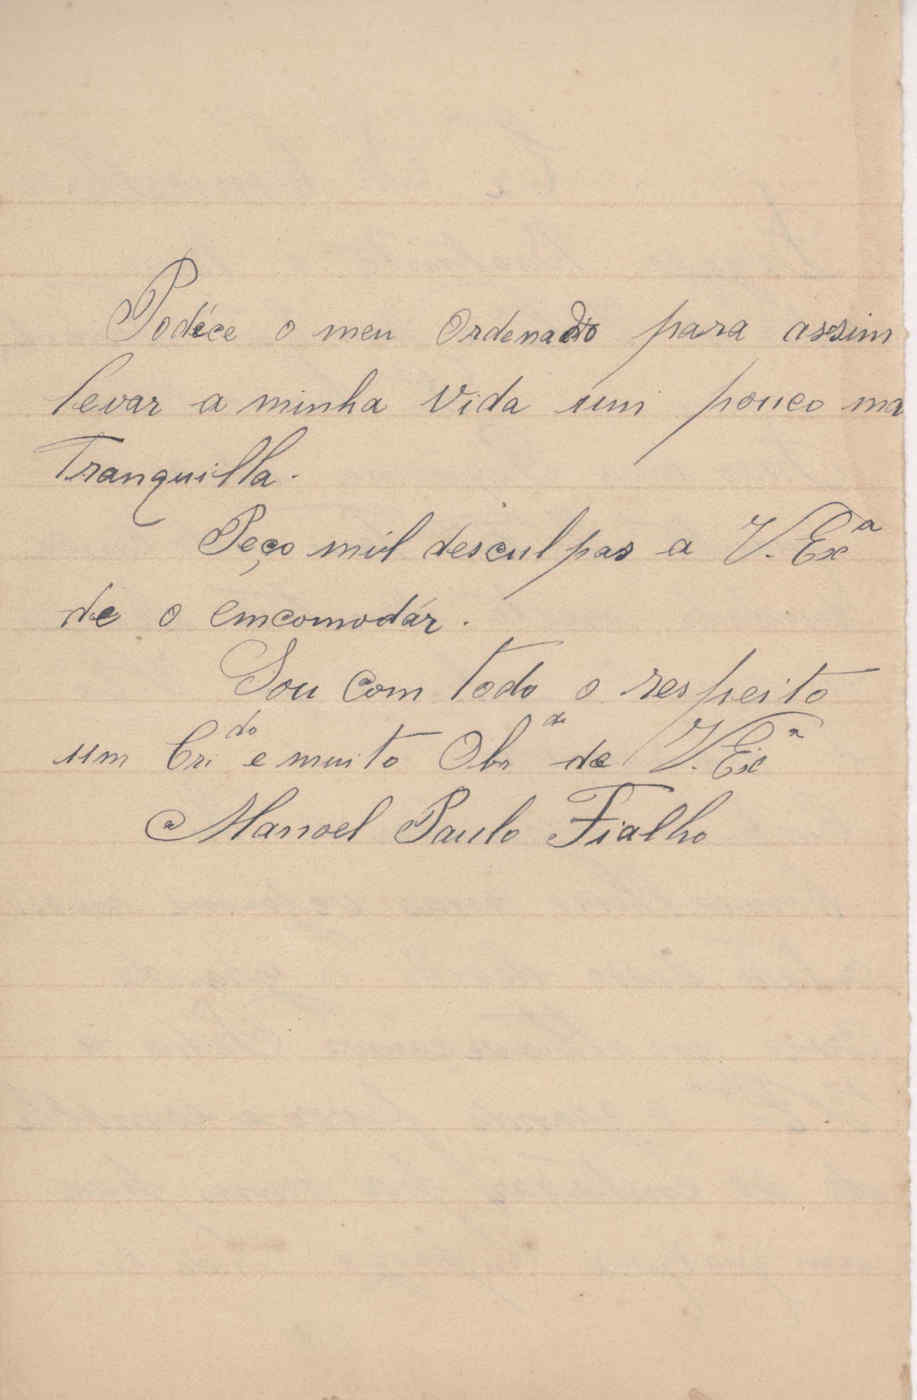 Podéce o meu Ordenado para assim
levar a minha vida um pouco ma
Tranquilla.
Peço mil desculpas a V. Exª
de o emcomodár.
Sou com todo o respeito
um Cri.do e muito Obr.do de V. Exª
Manoel Paulo Fialho